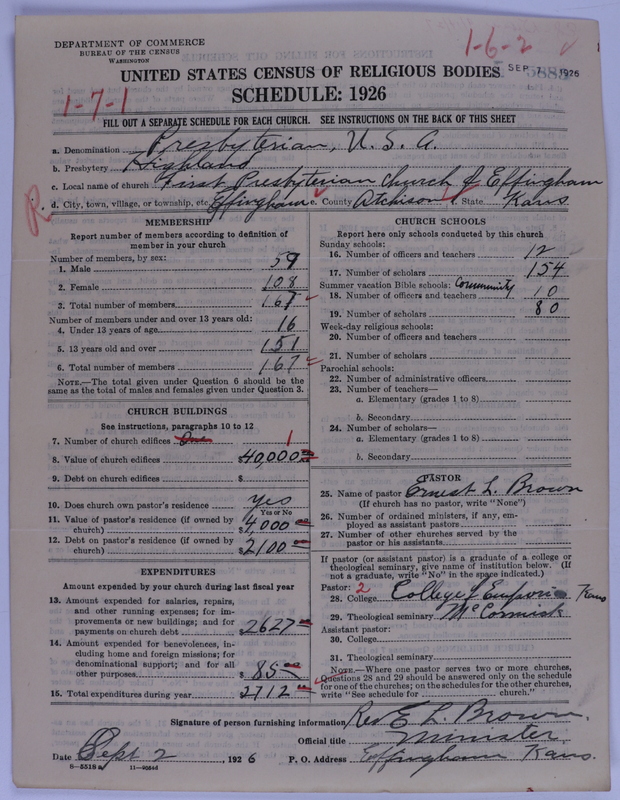 DEPARTMENT OF COMMERCE
BUREAU OF THE CENSUS
WASHINGTON
1-6-2
SEP 7 1926
UNITED STATES CENSUS OF RELIGIOUS BODIES
1-7-1
SCHEDULE: 1926
FILL OUT A SEPARATE SCHEDULE FOR EACH CHURCH. SEE INSTRUCTIONS ON THE BACK OF THIS SHEET
a. Denomination Presbyterian, U. S. A.
b. Presbytery Highland
c. Local name of church First Presbyterian Church of Effingham
d. City, town, village, or township, etc. Effingham e. County Atchison f. State Kans
R
MEMBERSHIP
Report number of members according to definition of member in your church
Number of members, by sex:
1. Male 59
2. Female 108
3. Total number of members 167
Number of members under and over 13 years old:
4. Under 13 years of age 16
5. 13 years old and over 151
6. Total number of members 167
NOTE.—The total given under Question 6 should be
same as the total of males and females given under Question 3.
CHURCH BUILDINGS
See instructions, paragraphs 10 to 12
7. Number of church edifices One 1
8. Value of church edifices $40,000 00
9. Debt on church edifices $
10. Does church own pastor's residence yes
Yes or No
11. Value of pastor's residence (if owned by
church) $4,000 00
12. Debt on pastor's residence (if owned by
church) $2100 00
EXPENDITURES
Amount expended by your church during last fiscal year
13. Amount expended for salaries, repairs,
and other running expenses; for im-
provements or new buildings; and for
payments on church debt $2627 00
14. Amount expended for benevolences, in-
cluding home and foreign missions; for
denominational support; and for all
other purposes $85 00
15. Total expenditures during year 2712 00
CHURCH SCHOOLS
Report here only schools conducted by this church
Sunday schools:
16. Number of officers and teachers 12
17. Number of scholars 154
Summer vacation Bible schools: Community
18. Number of officers and teachers 10
19. Number of scholars 80
Week-day religious schools:
20. Number of officers and teachers
21. Number of scholars
Parochial schools:
22. Number of administrative officers
23. Number of teachers—
a. Elementary (grades 1 to 8)
b. Secondary
24. Number of scholars—
a. Elementary (grades 1 to 8)
b. Secondary
PASTOR
25. Name of pastor Ernest L. Brown
(If church has no pastor, write "None")
26. Number of ordained ministers, if any, em-
ployed as assistant pastors
27. Number of other churches served by the
pastor or his assistants
If pastor (or assistant pastor) is a graduate of a college or
theological seminary, give name of institution below. (If
not a graduate, write "No" in the space indicated.)
Pastor: 2
28. College College of Emporia Kans
29. Theological seminary McCormick
Assistant pastor:
30. College
31. Theological seminary
NOTE.—Where one pastor serves two or more churches,
Questions 28 and 29 should be answered only on the schedule
for one of the churches; on the schedules for the other churches,
write "See schedule for church."
Signature of person furnishing information Rev E. L. Brown.
Official title Minister
Date Sept 2, 1926 P. O. Address Effingham Kans.
8-5518 a 11-9054d